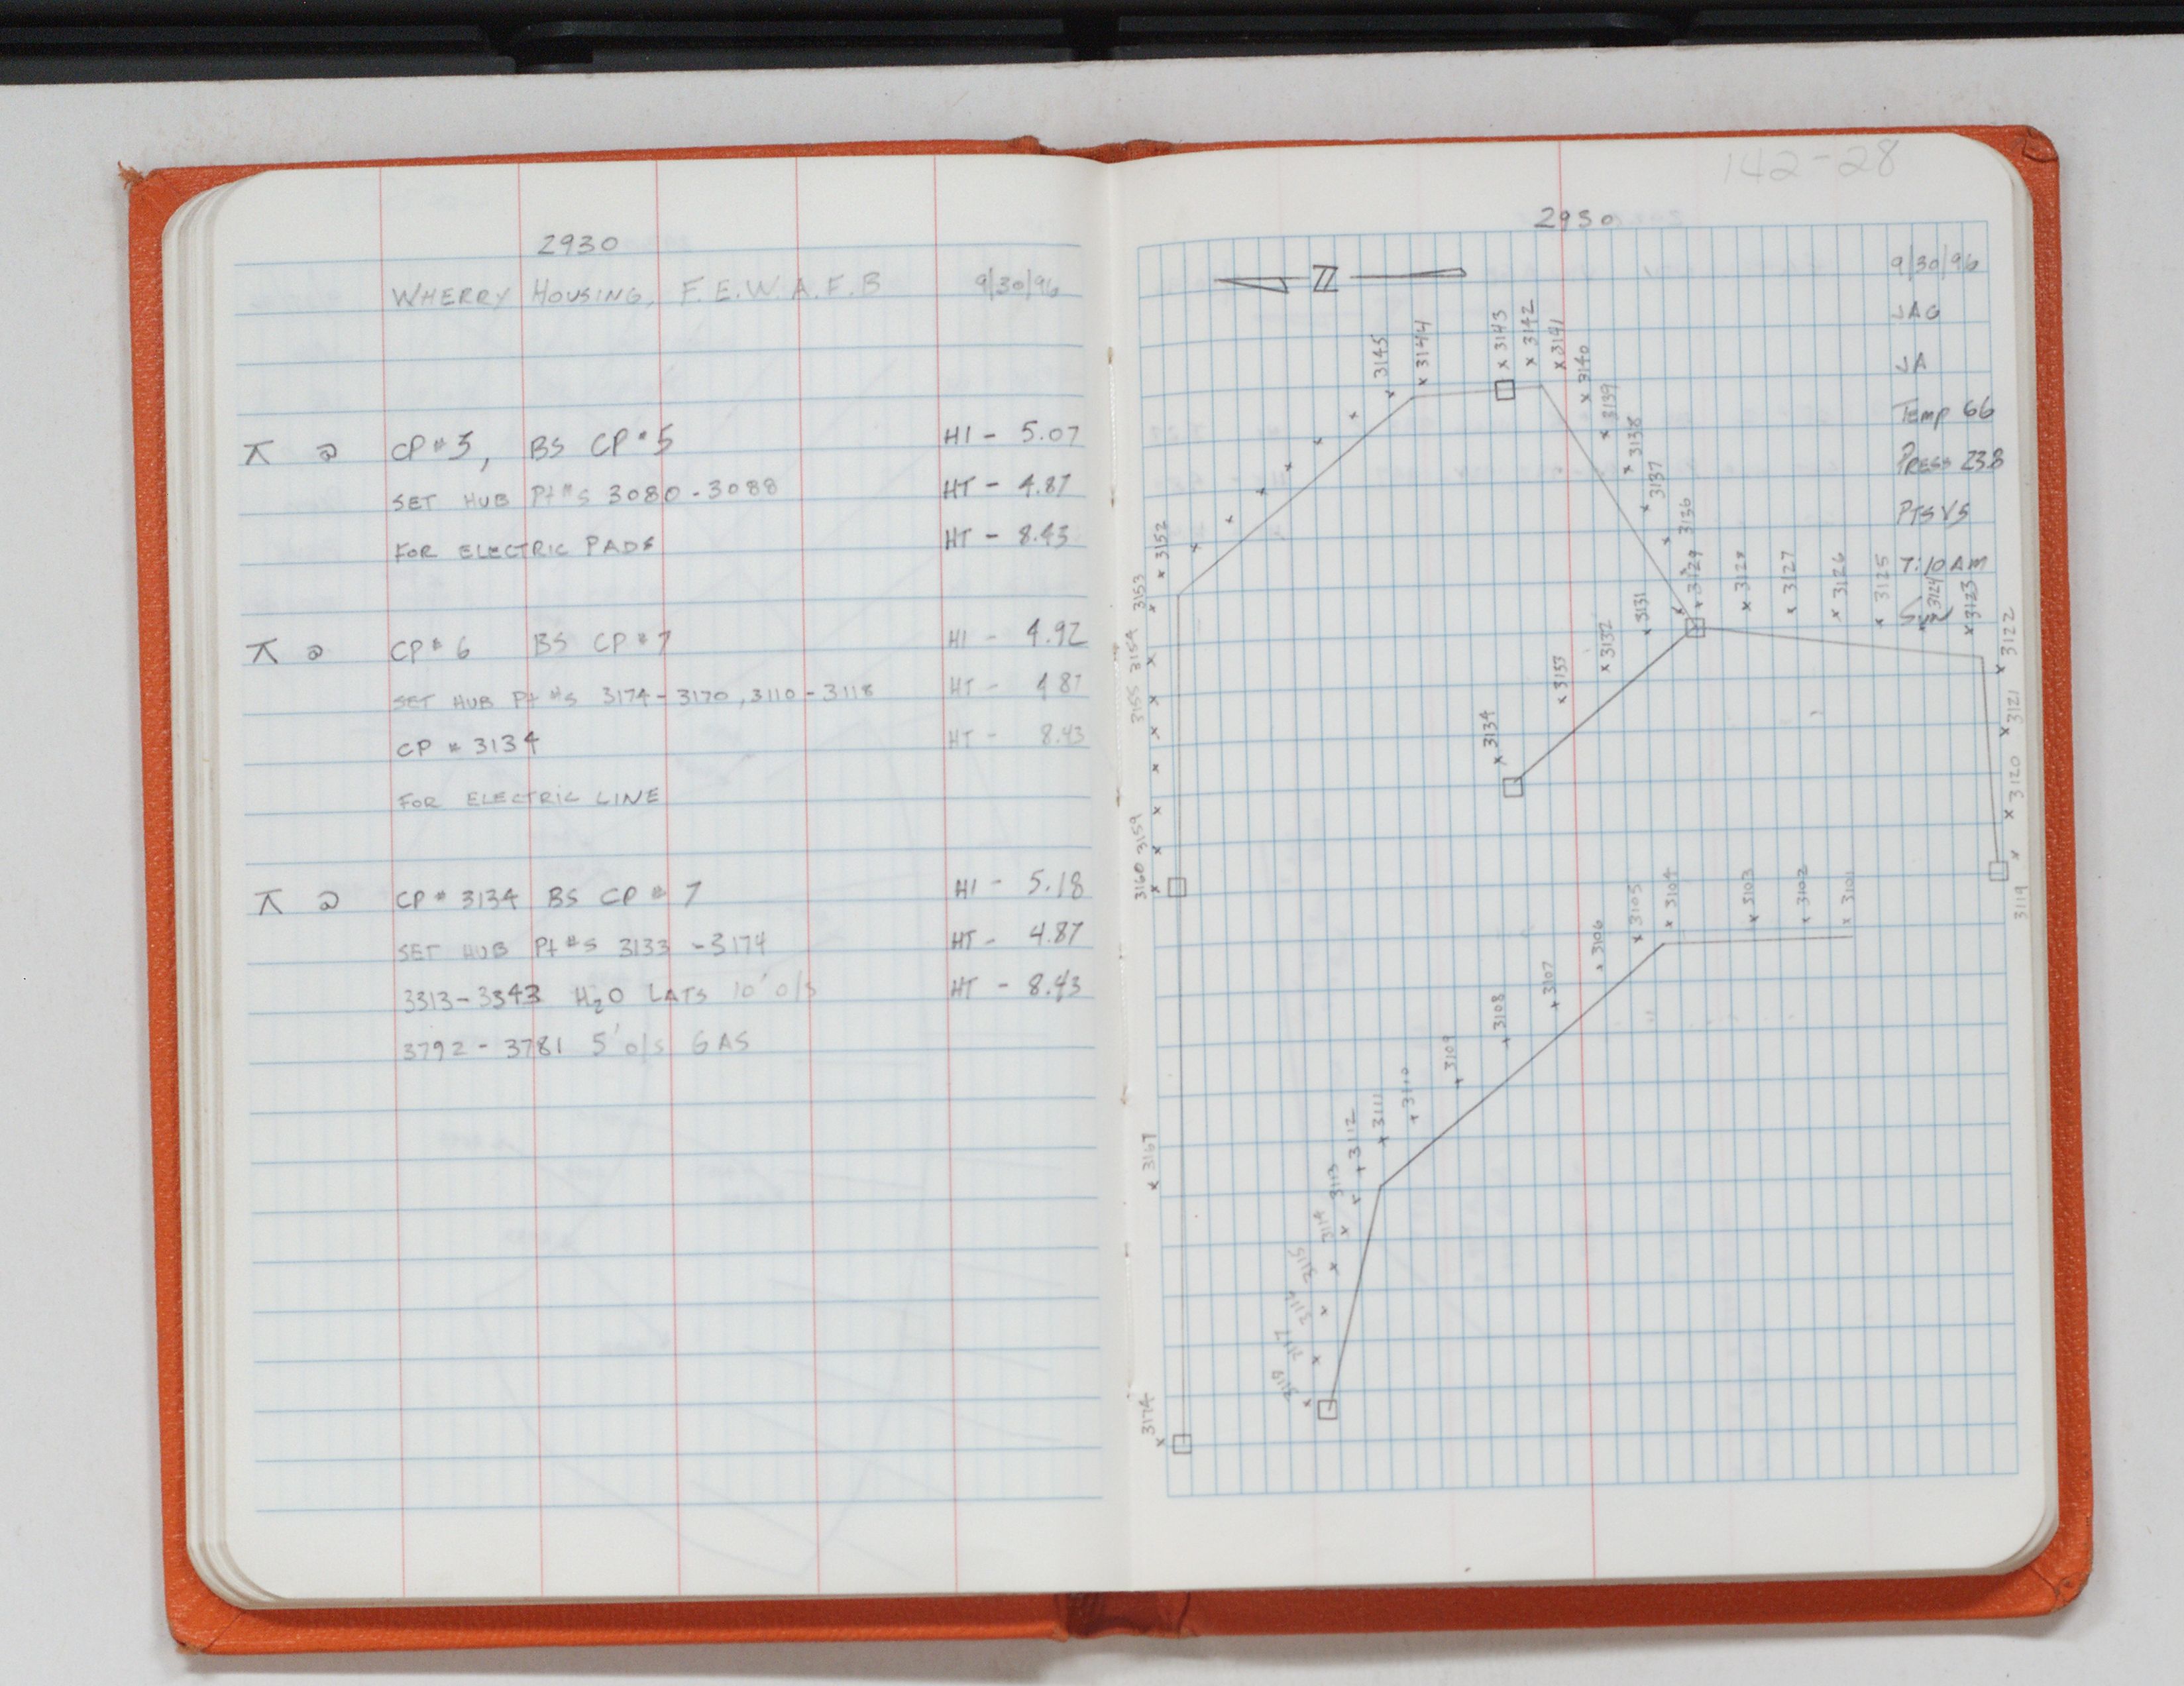 2930
WHERRY HOUSING, F.E.W.A.F.B 9/30/96
CP#3, BS CP#5 HI - 5.07
SET HUB Pt#s 3080-3088 HT - 4.87
FOR ELECTRIC PADS HT - 8.43
CP#6 BS CP#7 HI - 4.92
SET HUB Pt#s 3174-3170, 3110-3118 HT - 4.87
CP#3134 HT - 8.43
FOR ELECTRIC LINE
CP#3134 BS CP#7 HI - 5.18
SET HUB Pt#s 3133-3174 HT - 4.87
3313-3343 H2O LATS 10' o/s HT - 8.43
3792-3781 5' o/s GAS
142-28
2930
N
9/30/96
JAG
JA
Temp 66
Press 23.8
7:10 AM
3145
3144
x 3143
x 3142
x 3141
x 3140
x 3139
x 3138
x 3137
3136
x 3129
x 3128
x 3127
x 3126
x 3125
3124
x 3123
x 3122
x 3121
x 3120
3119
x 3131
x 3132
x 3133
x 3134
x 3152
3153
3154
3155
3159
3160
x 3167
3174
x 3101
x 3102
x 3103
x 3104
x 3105
3106
3107
3108
3109
3110
3111
3112
3113
3114
3115
3116
3117
3118